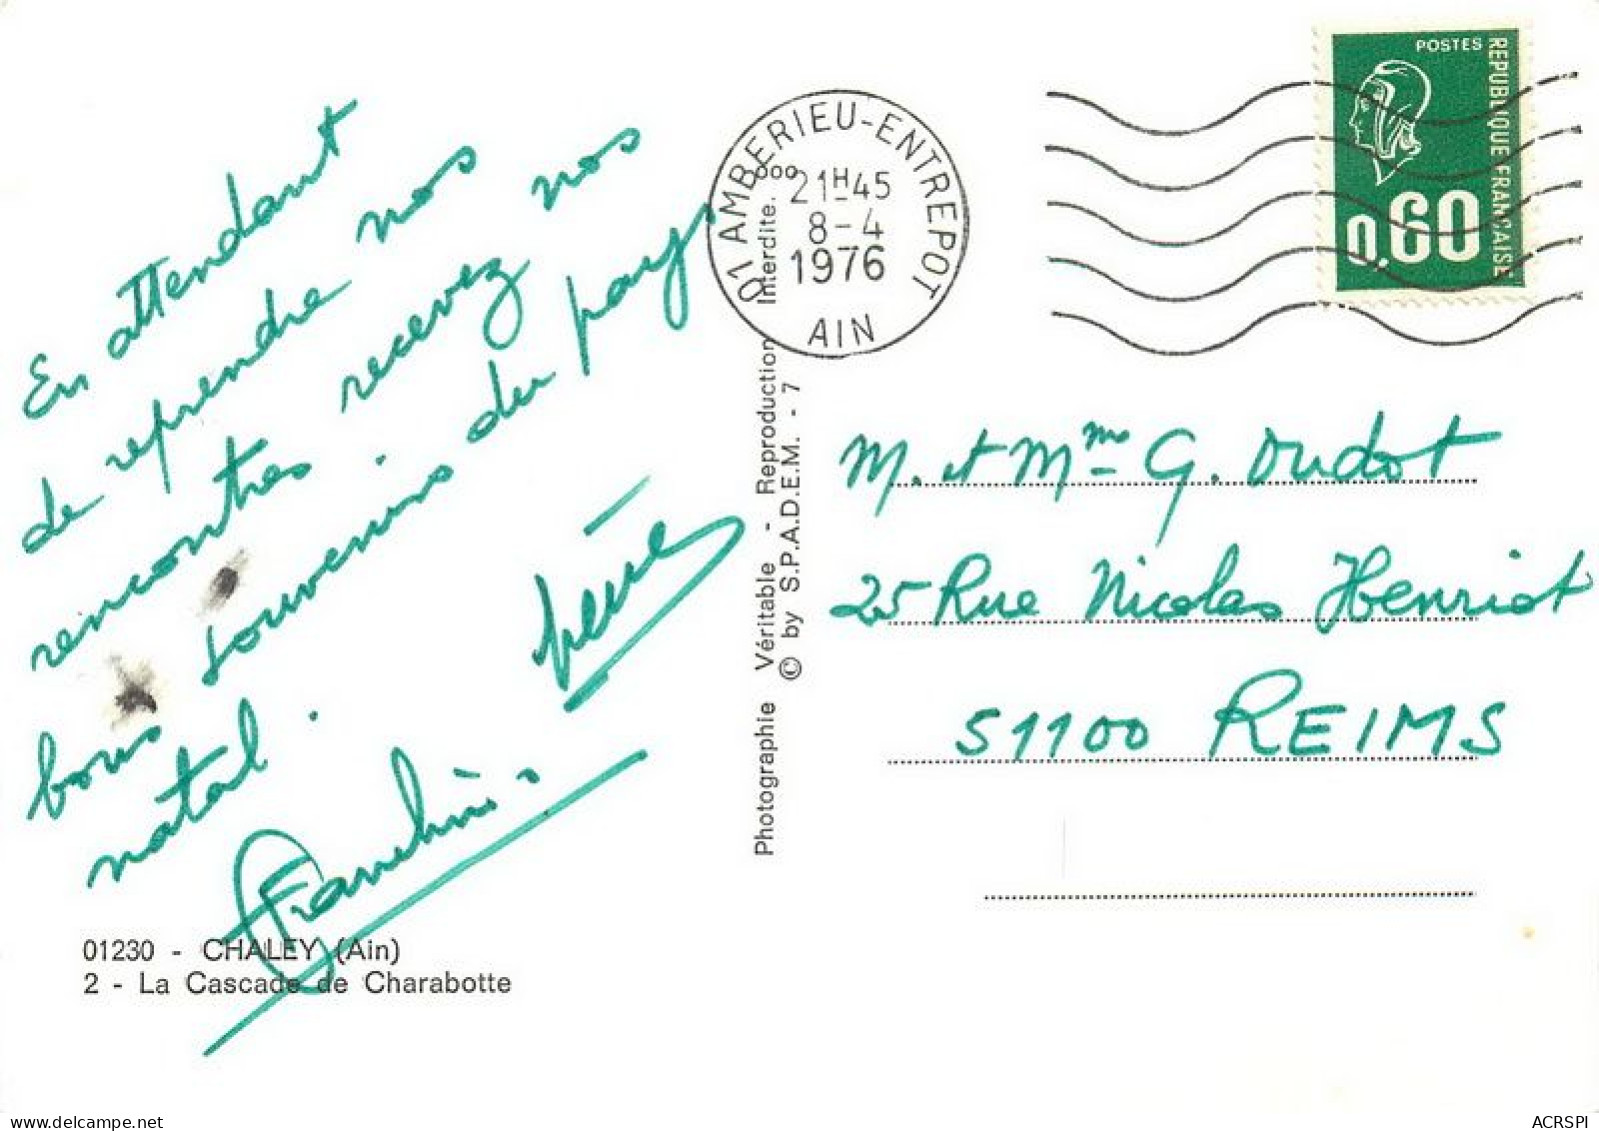 En attendant
de reprendre nos
rencontres recevez nos
bons souvenirs du pays
natal.
Franchini
01230 - CHALEY (Ain)
2 - La Cascade de Charabotte
Photographie Véritable - Reproduction Interdite. 000
© by S.P.A.D.E.M. - 7
01 AMBERIEU-ENTREPOT
21H45
8-4
1976
AIN
POSTES
REPUBLIQUE FRANCAISE
0,60
M. et Mme G. Oudot
25 Rue Nicolas Henriot
51100 REIMS
ACRSPI